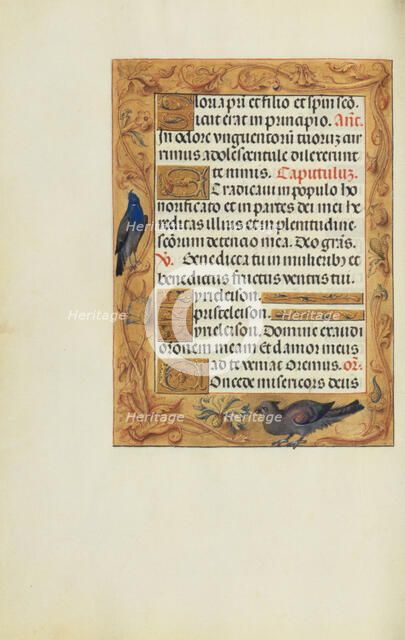 Gloria pri et filio et spiri sco.
icut erat in principio. Ant.
In odore unguentoru tuoruz cur
rimus adolescentule dilexerunt
te nimis. Capituluz.
Et radicavi in populo ho
norificato et in partes dei mei he
reditas illius et in plenitudine
scorum detencio mea. Deo gras.
V. Benedicta tu in mulieribz et
benedictus fructus ventris tui.
Kyrieleison.
Christeleison.
Kyrieleison. Domine exaudi
orationem meam Et clamor meus
ad te veniat Oremus. Or.
Concede misericors deus
Heritage
Heritage
Heritage
Heritage
Heritage
Heritage
Heritage